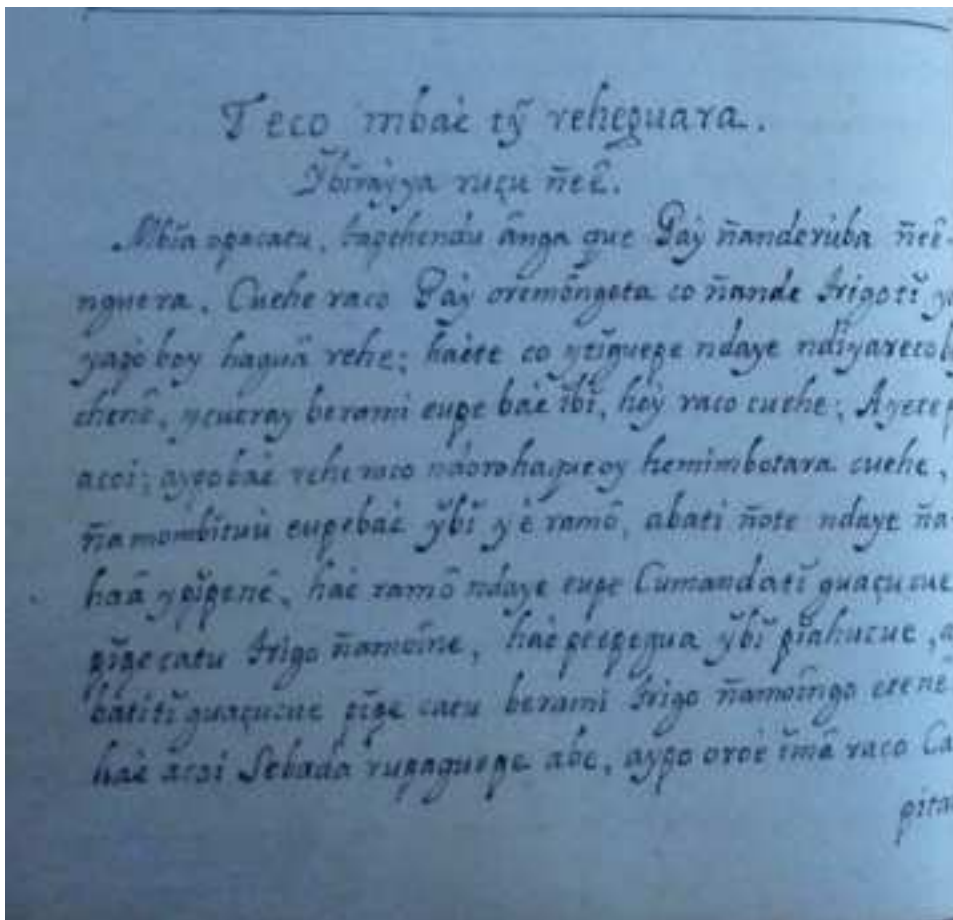 Teco mbaè tỹ reheguara.
Ỹbĩraỳya ruçu ñeê.
Mbĩa opacatu, tapehendu ânga que Paỳ ñanderùba ñeê-
nguera. Cuehe raco Paỳ oremôngeta co ñande trigotĩ
yapò boy haguâ rehe; haète co ndaye
chenê, berami eupe baè ĭbĭ, hey raco cuehe; Ayete
acoi; aypobaè rehe raco hemimbotara cuehe,
eupebaè ỹbĭ yè ramô, abati ñote ndaye ña-
haâ ypĭpenê, haè ramô ndaye eupe Cumandatĭ guaçucue
pĭpe catu trigo ñamoîne, haè peepegua ỹbĭ pĭahucue, a
batitĭ guaçucue pĭpe catu berami trigo ñamoîngo etenê
haè acoi Sebada rupaguepe abe, aypo oroè ĭmâ raco Ca
pita